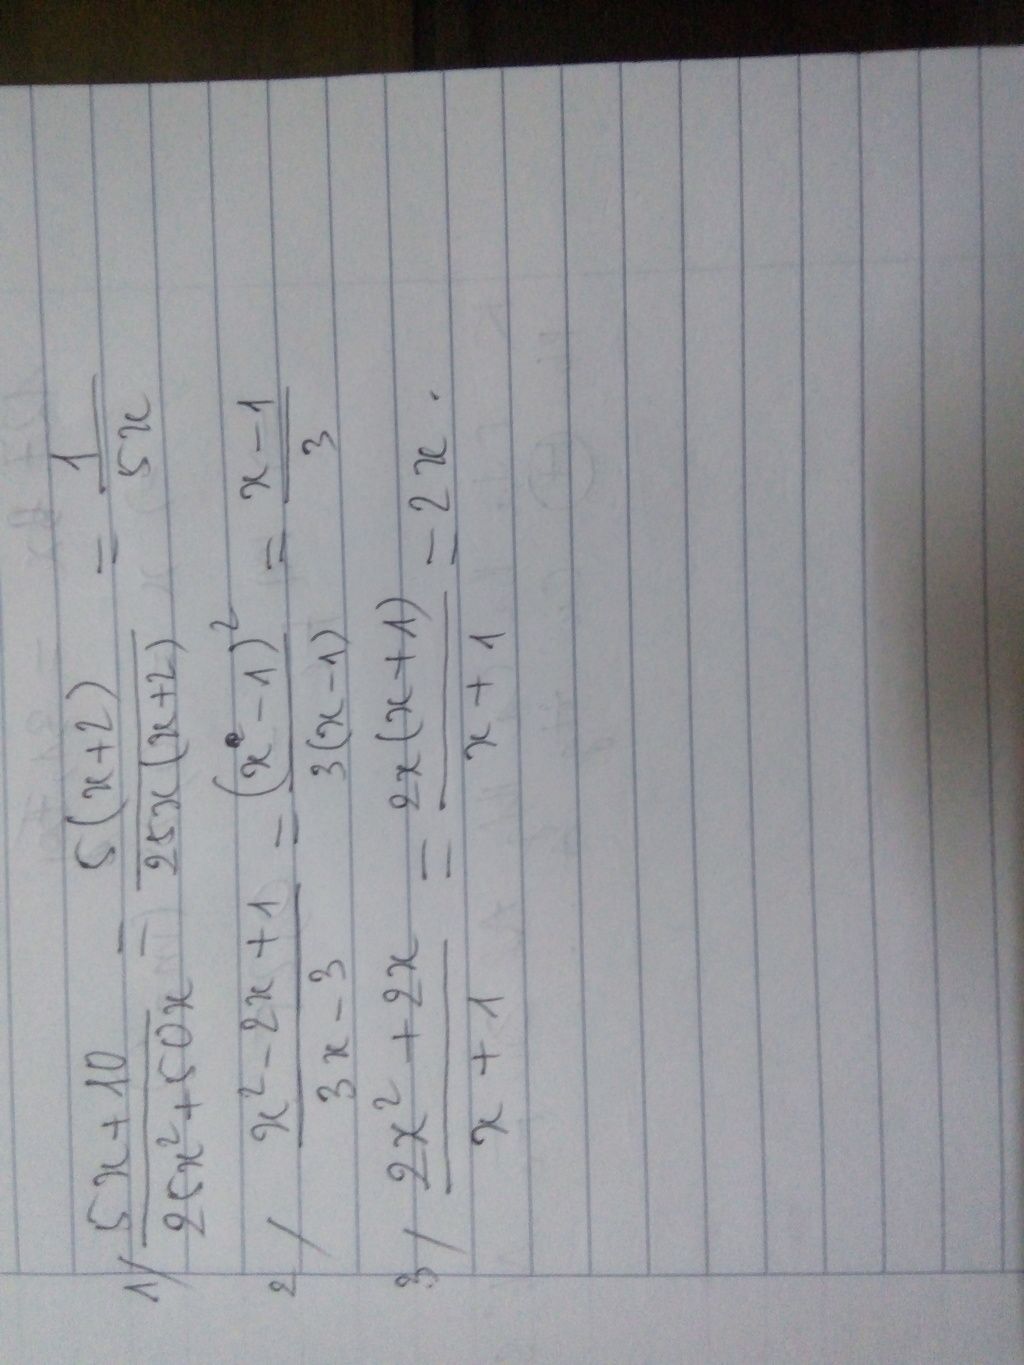 1/ (5x+10)/(25x²+50x) = 5(x+2)/25x(x+2) = 1/5x
2/ (x²-2x+1)/(3x-3) = (x-1)²/3(x-1) = (x-1)/3
3/ (2x²+2x)/(x+1) = 2x(x+1)/(x+1) = 2x.